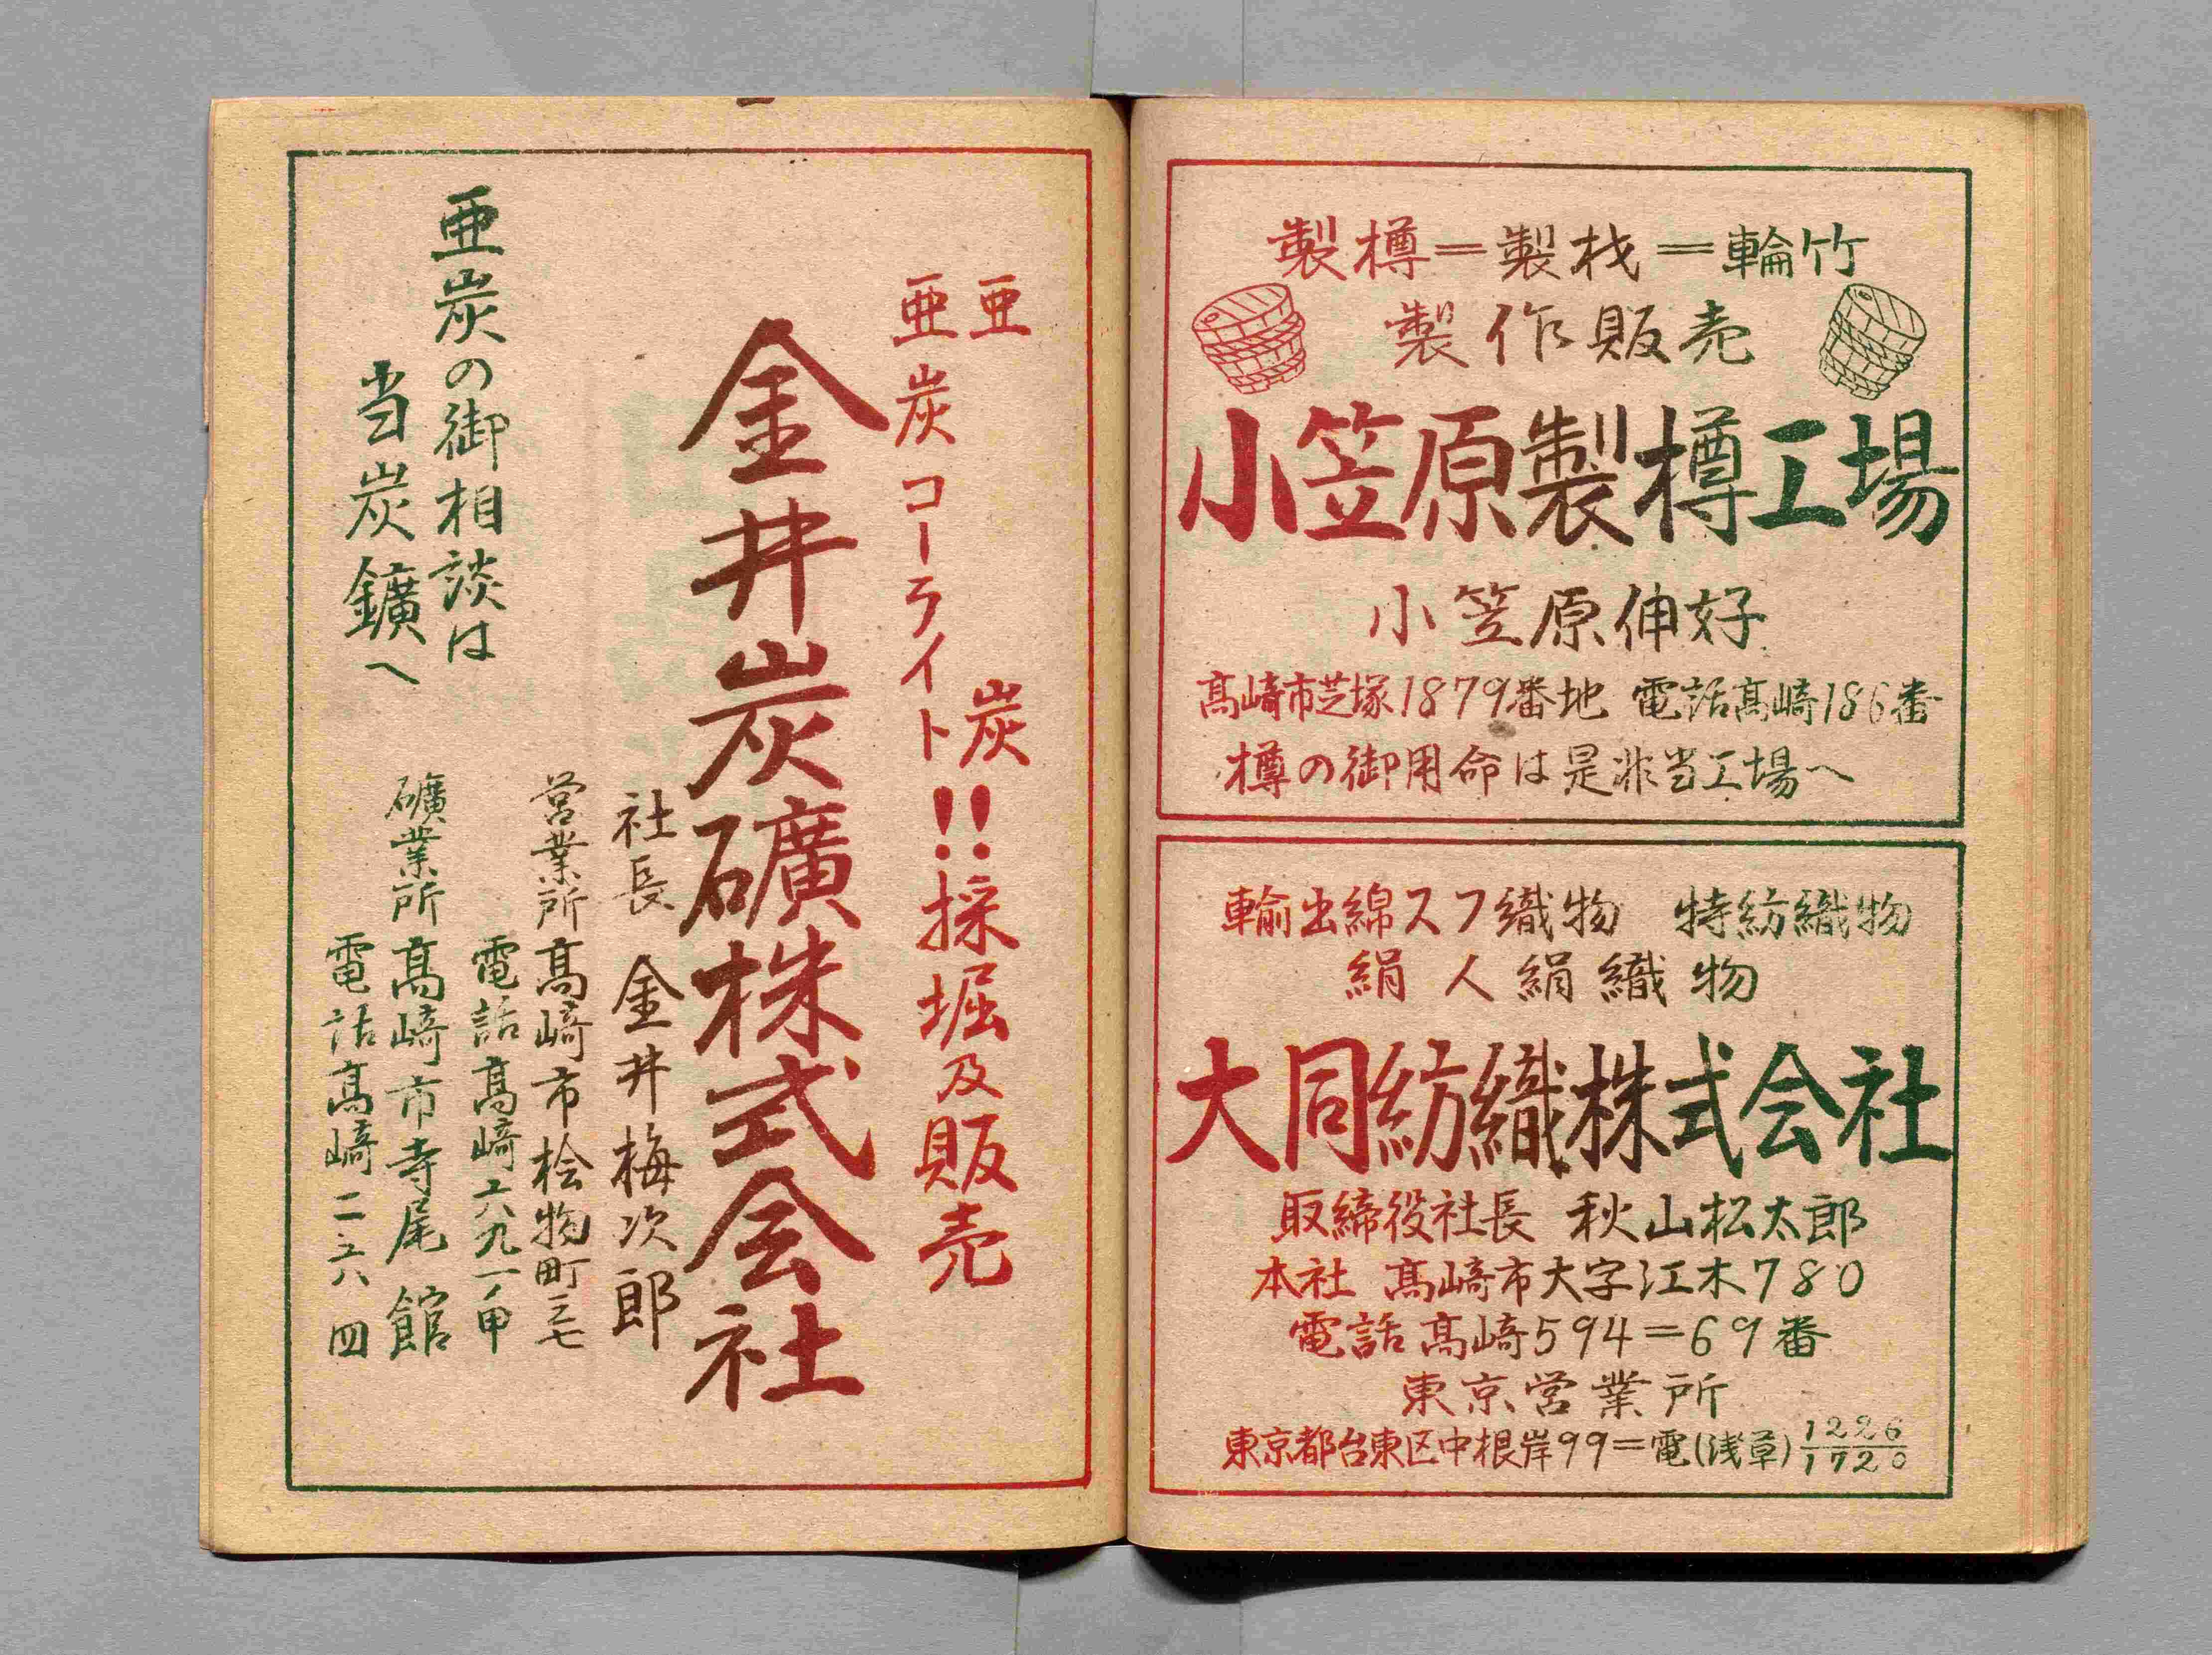 製樽＝製材＝輪竹
製作販売
小笠原製樽工場
小笠原伸好
髙﨑市芝塚1879番地 電話髙﨑186番
樽の御用命は是非当工場へ
輸出綿スフ織物 特紡織物
絹人絹織物
大同紡織株式会社
取締役社長 秋山松太郎
本社 髙﨑市大字江木780
電話髙﨑594＝69番
東京営業所
東京都台東区中根岸99＝電(浅草)1226
1720
亜炭
亜炭コーライト
!!採堀及販売
金井炭礦株式会社
社長 金井梅次郎
営業所髙﨑市桧物町三七
電話髙﨑六九一ノ甲
礦業所髙﨑市寺尾館
電話髙﨑二六八四
亜炭の御相談は
当炭鑛へ